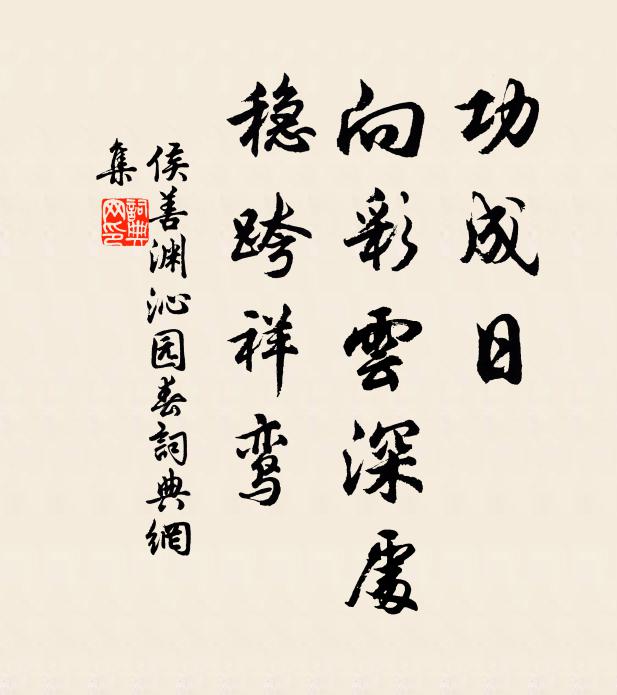 功成日
向彩雲深處
穩跨祥鸾
侯善渊沁园春詞典網
集
詞典網印